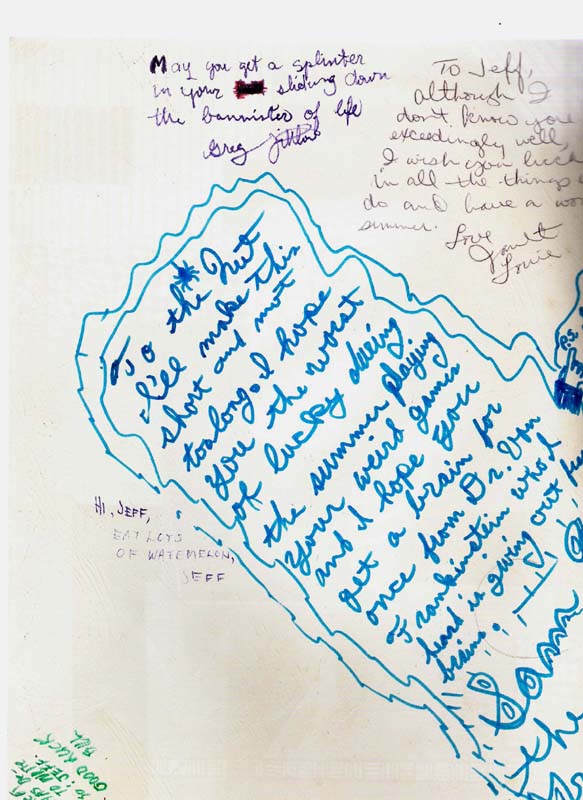 May you get a splinter
in your sliding down
the bannister of life
Greg
To Jeff,
although I
don't know you
exceedingly well,
I wish you luck
in all the things
do and have a
summer. Love
Janet
Louie
To the Nut
I'll make this
short and not
toolong. I hope
you the worst
of lucky during
the summer playing
your weird games
and I hope you
get a brain for
once from Dr. Von
Frankinstein who'd
heard is giving out
brains.
P.S.
Sam
the
HI, JEFF,
EAT LOTS
OF WATEMELON,
JEFF
GOOD RUCK
TO JEFF